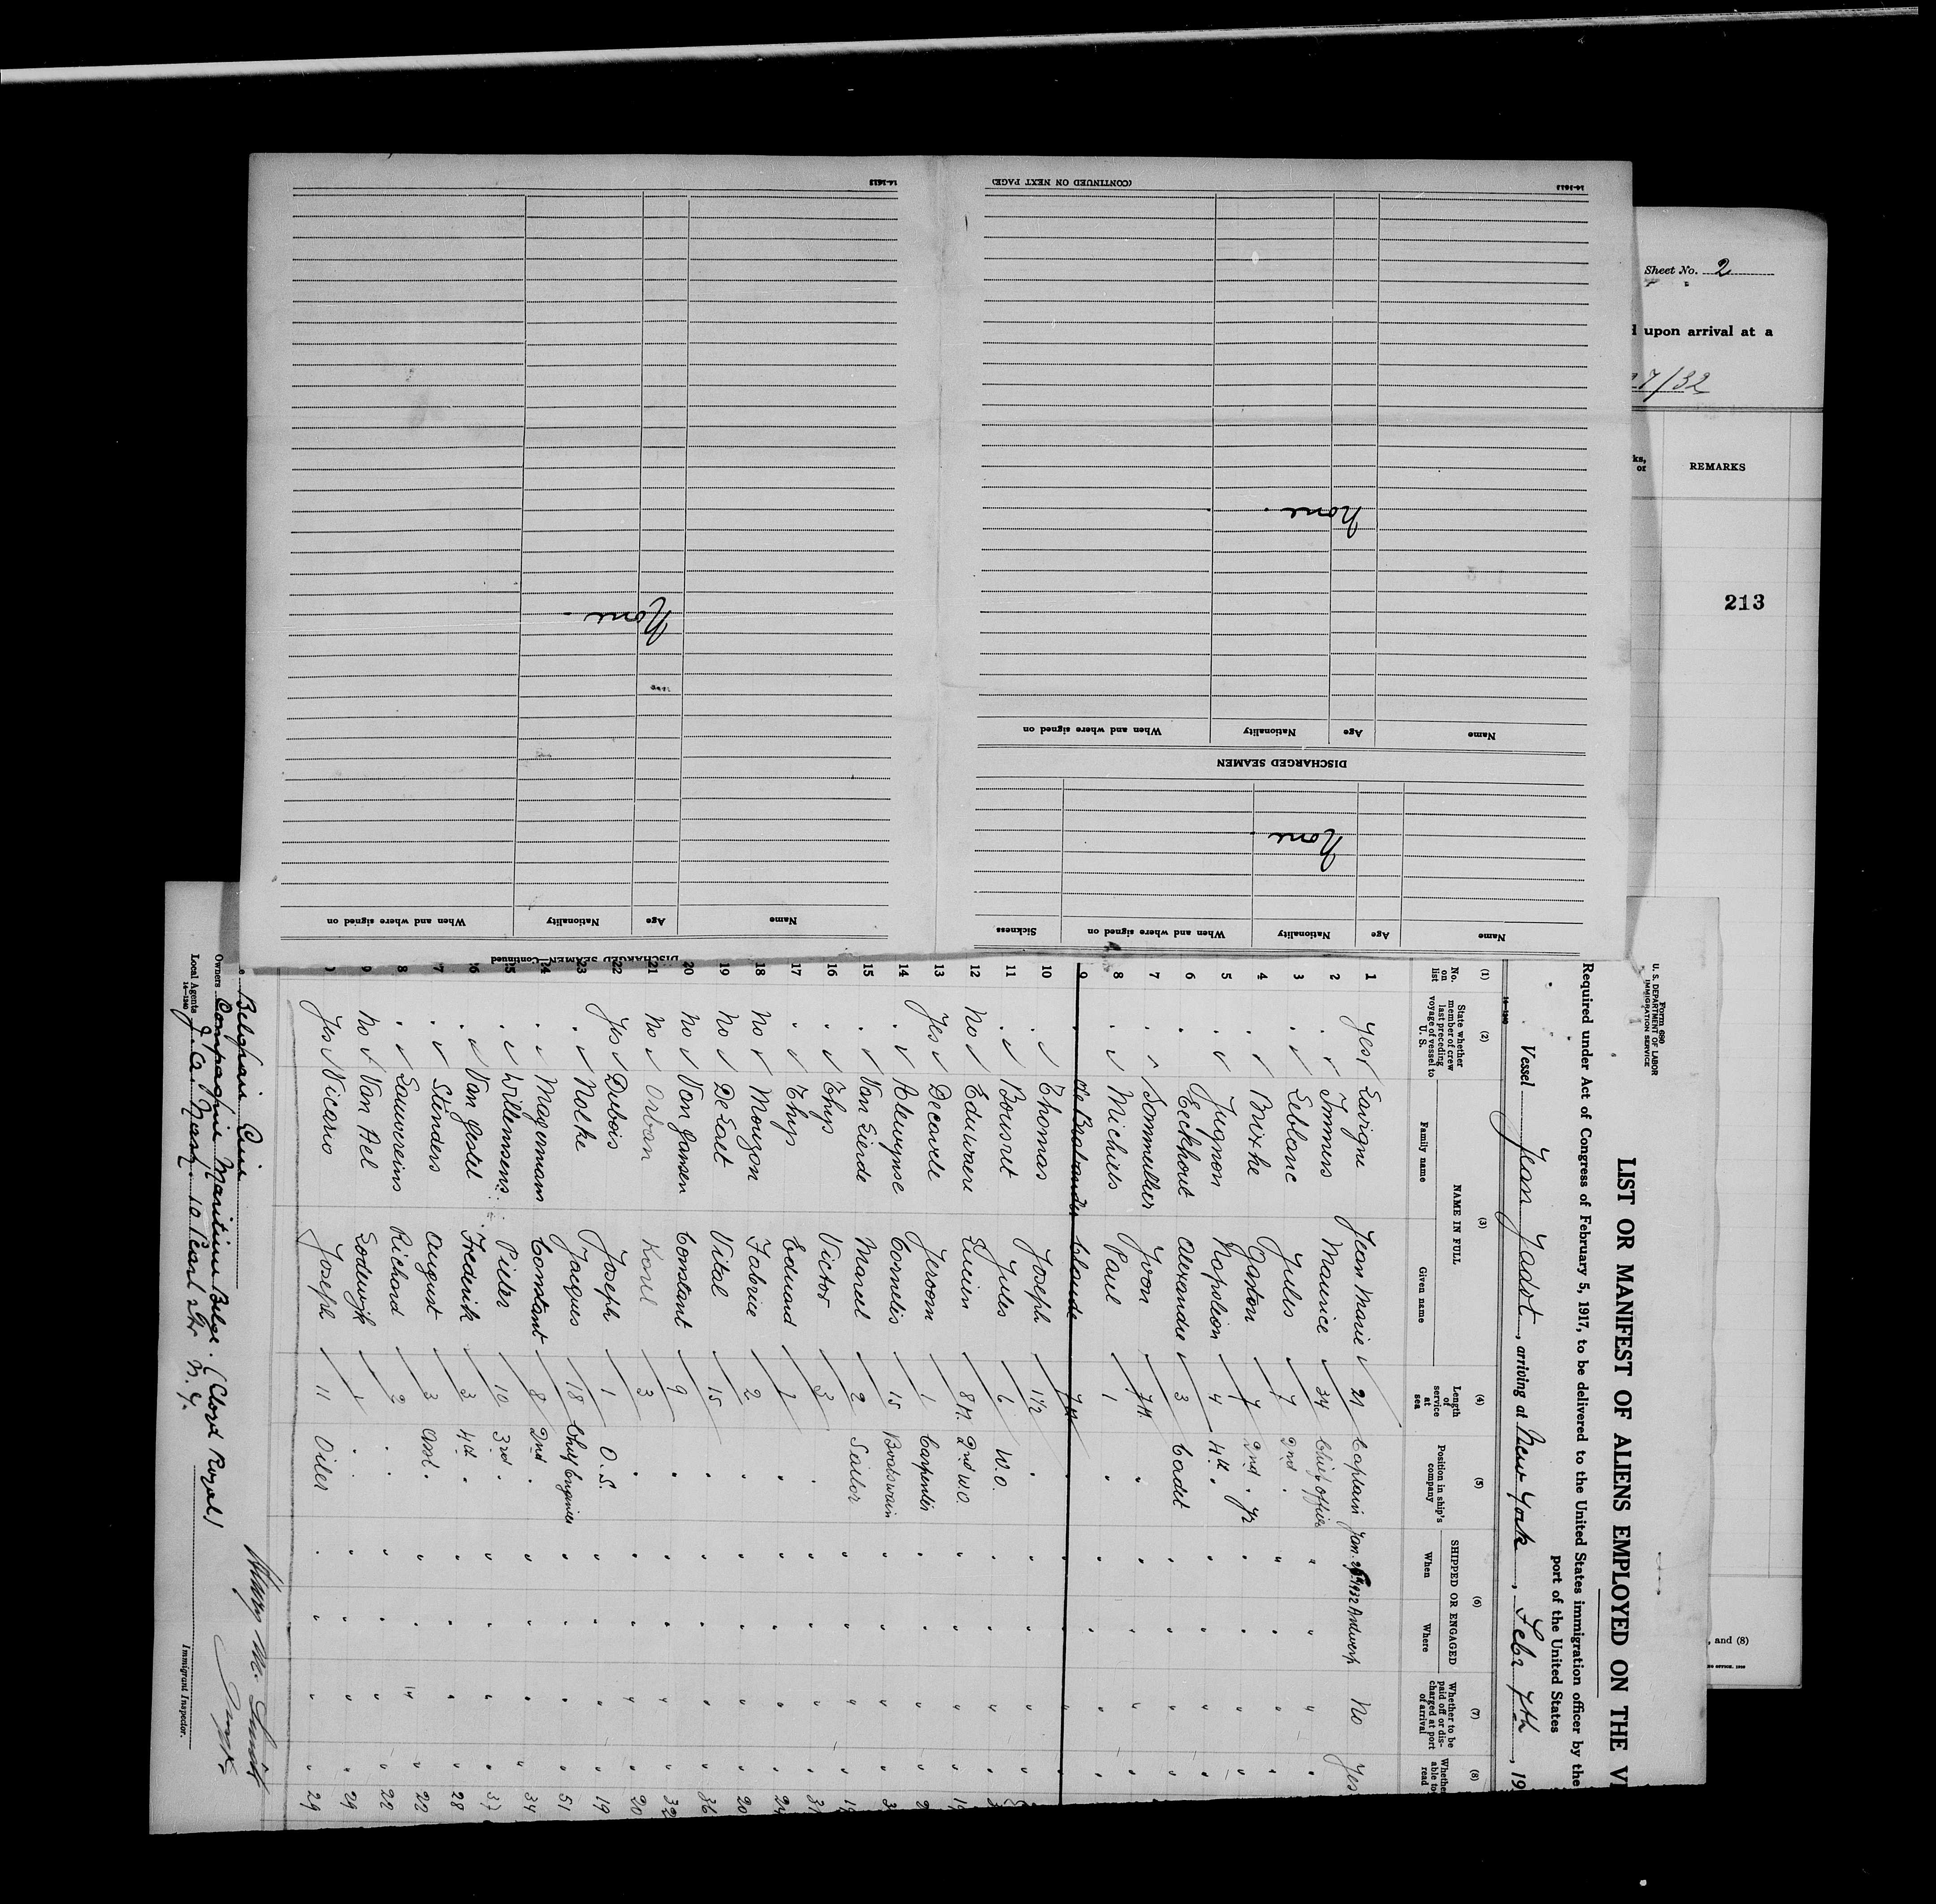 14-1613
(CONTINUED ON NEXT PAGE)
None
Name
Age
Nationality
When and where signed on
DISCHARGED SEAMEN
None
Name
Age
Nationality
When and where signed on
Sickness
14-1613
None
Name
Age
Nationality
When and where signed on
DISCHARGED SEAMEN—Continued
Sheet No. 2
upon arrival at a
27/32
REMARKS
213
, and (8)
Form 680
U. S. DEPARTMENT OF LABOR
IMMIGRATION SERVICE
LIST OR MANIFEST OF ALIENS EMPLOYED ON THE
Required under Act of Congress of February 5, 1917, to be delivered to the United States immigration officer by the
port of the United States
Vessel Jean Jadot, arriving at New York, Febr 7th, 19
14-1240
(1) (2) (3) (4) (5) (6) (7) (8)
No. on list
State whether member of crew last preceding voyage of vessel to U. S.
NAME IN FULL
Family name
Given name
Length of service at sea
Position in ship's company
SHIPPED OR ENGAGED
When
Where
Whether to be paid off or discharged at port of arrival
Whether able to read
1 yes Lavigne Jean Marie 21 Captain Jan. 1932 Antwerp No Yes
2 " Immers Maurice 24 Chief officer
3 " Leblanc Jules 7 2nd "
4 " Brixhe Gaston 7 2nd " Jr
5 " Jugnon Napoleon 4 4th "
6 " Eeckhout Alexandre 3 Cadet
7 " Sommullier Yvon 7M "
8 " Michiels Paul 1 "
9 " De Brabander Claude 7M
10 " Thomas Joseph 1/2 "
11 " Bousret Jules 6 W.O.
12 No Eduwaere Lucien 8M. 2nd W.O.
13 Yes Decorvele Jeroom 1 Carpenter
14 " Alewynse Cornelis 15 Boatswain
15 " Van Lierde Marcel 2 Sailor
16 " Thys Victor 3 "
17 " Thys Eduard 1 "
18 No Mouzon Fabrice 2 "
19 No De Laet Vital 15 "
20 No Van Jansen Constant 9 " 32
21 No Orban Karel 3 " 20
22 Yes Dubois Joseph 1 O.S. 19
23 " Nolke Jacques 18 Chief Engineer 51
24 " Magermans Constant 8 2nd " 34
25 " Willemsens Pieter 10 3rd " 37
26 " Van Gestel Frederik 3 4th " 28
27 " Stinders August 3 Asst. 22
28 " Sauvereins Richard 2 " 22
29 No Van Ael Lodewijk 1 " 29
Yes Vicario Joseph 11 Oiler 29
Belgian Line
Owners Compagnie Maritime Belge. (Lloyd Royal)
Local Agents 10 Pearl Str N.Y.
14-1240
Immigrant Inspector.